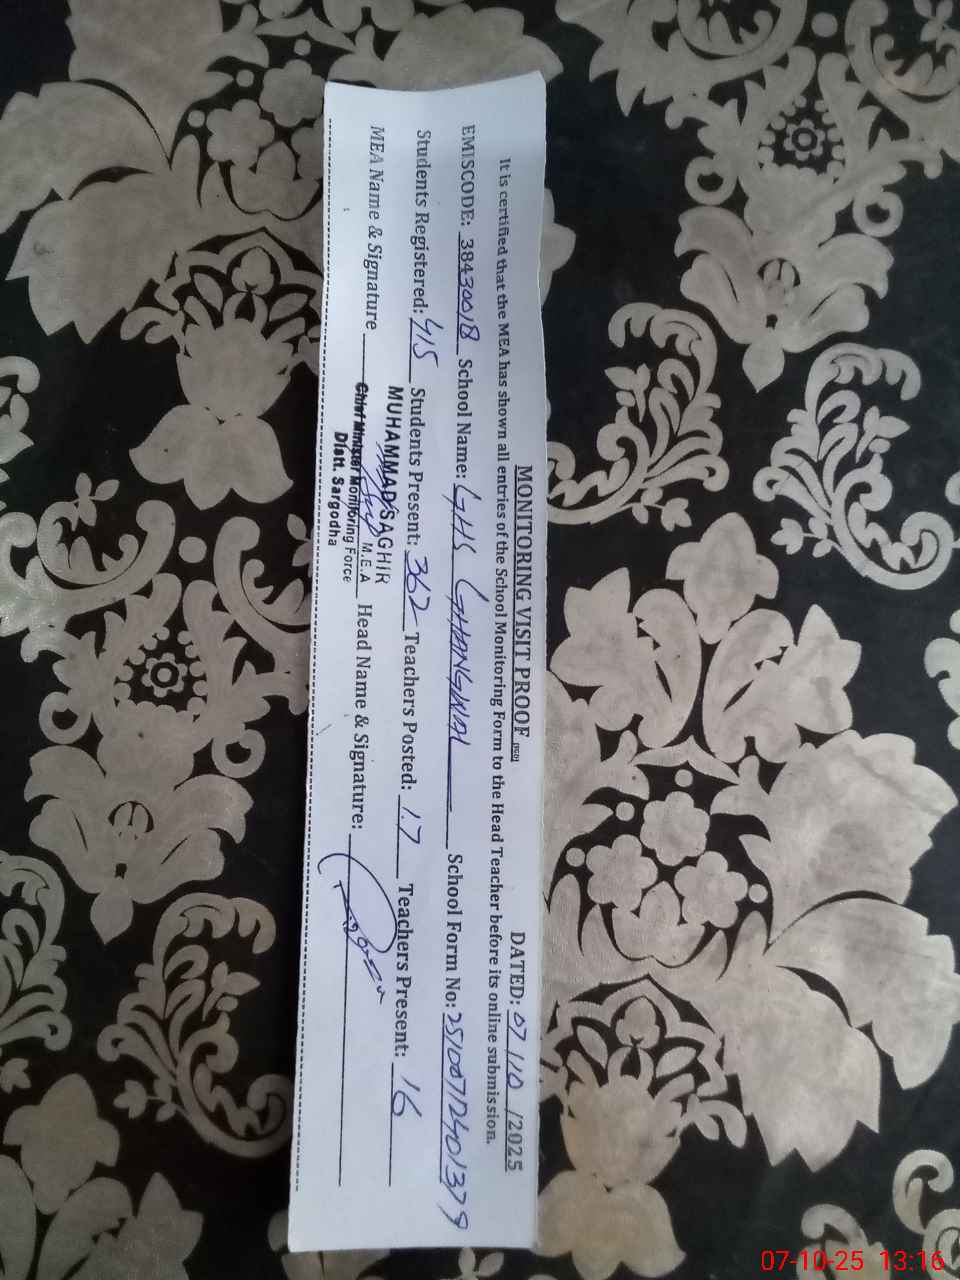 MONITORING VISIT PROOF (PSO) DATED: 07/10/2025
It is certified that the MEA has shown all entries of the School Monitoring Form to the Head Teacher before its online submission.
EMISCODE: 38430018 School Name: GHS GHANGWAL School Form No: 25100712401379
Students Registered: 415 Students Present: 362 Teachers Posted: 17 Teachers Present: 16
MUHAMMAD SAGHIR
MEA Name & Signature M.E.A Head Name & Signature:
Chief Minister Monitoring Force
Distt. Sargodha
07-10-25 13:16